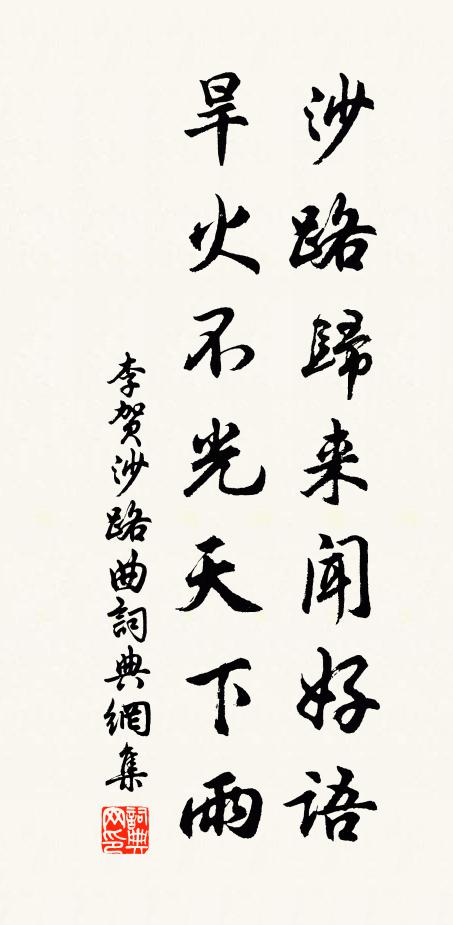 沙路歸来闻好語
旱火不光天下雨
李贺沙路曲詞典網集
詞典网印